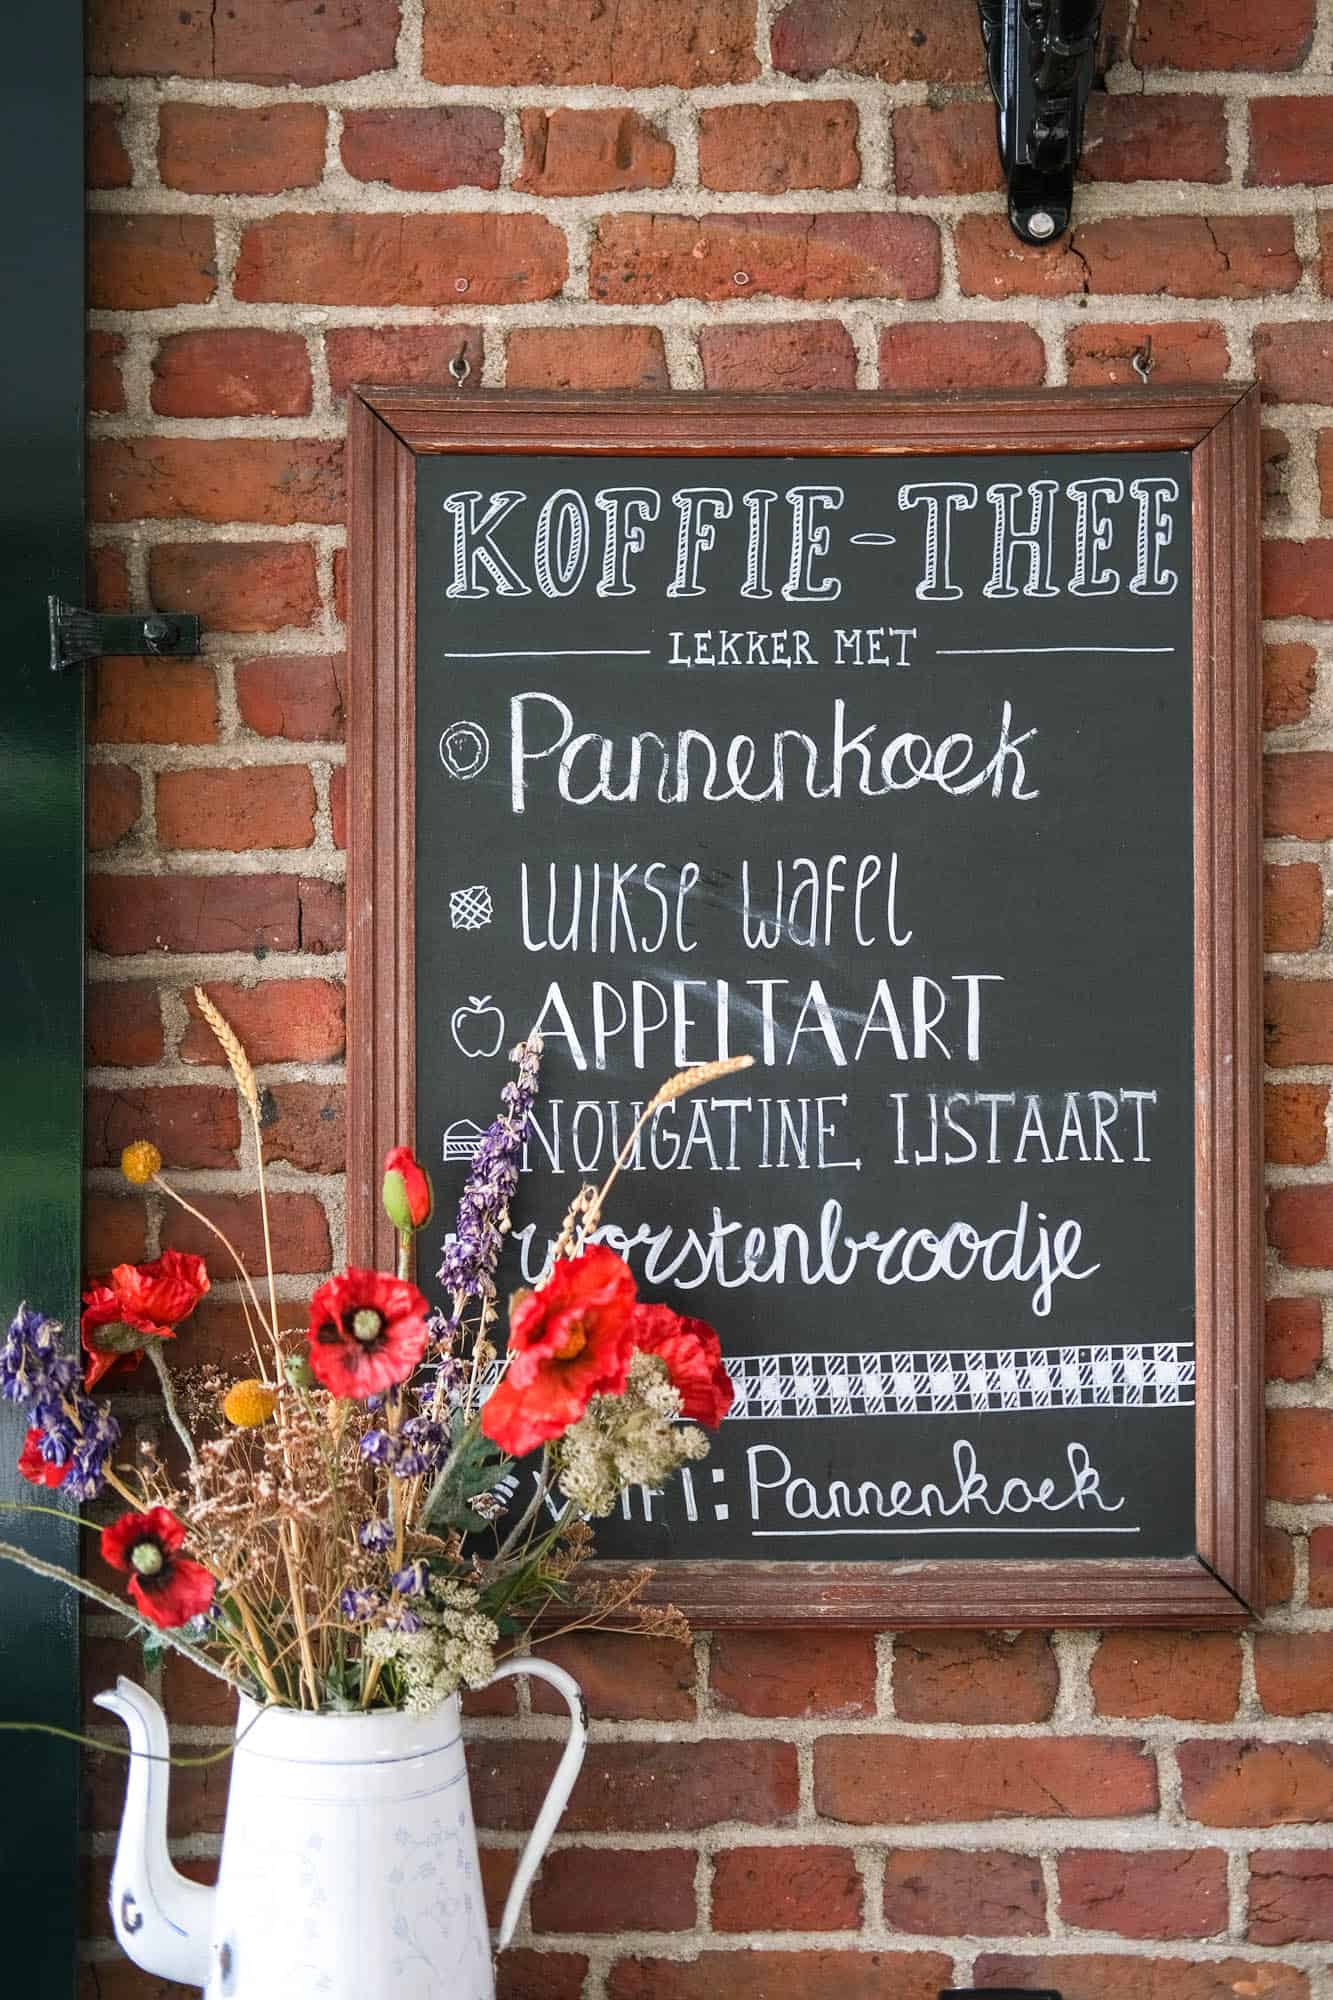 KOFFIE-THEE
LEKKER MET
Pannenkoek
LUIKSE WAFEL
APPELTAART
NOUGATINE IJSTAART
worstenbroodje
WIFI: Pannenkoek